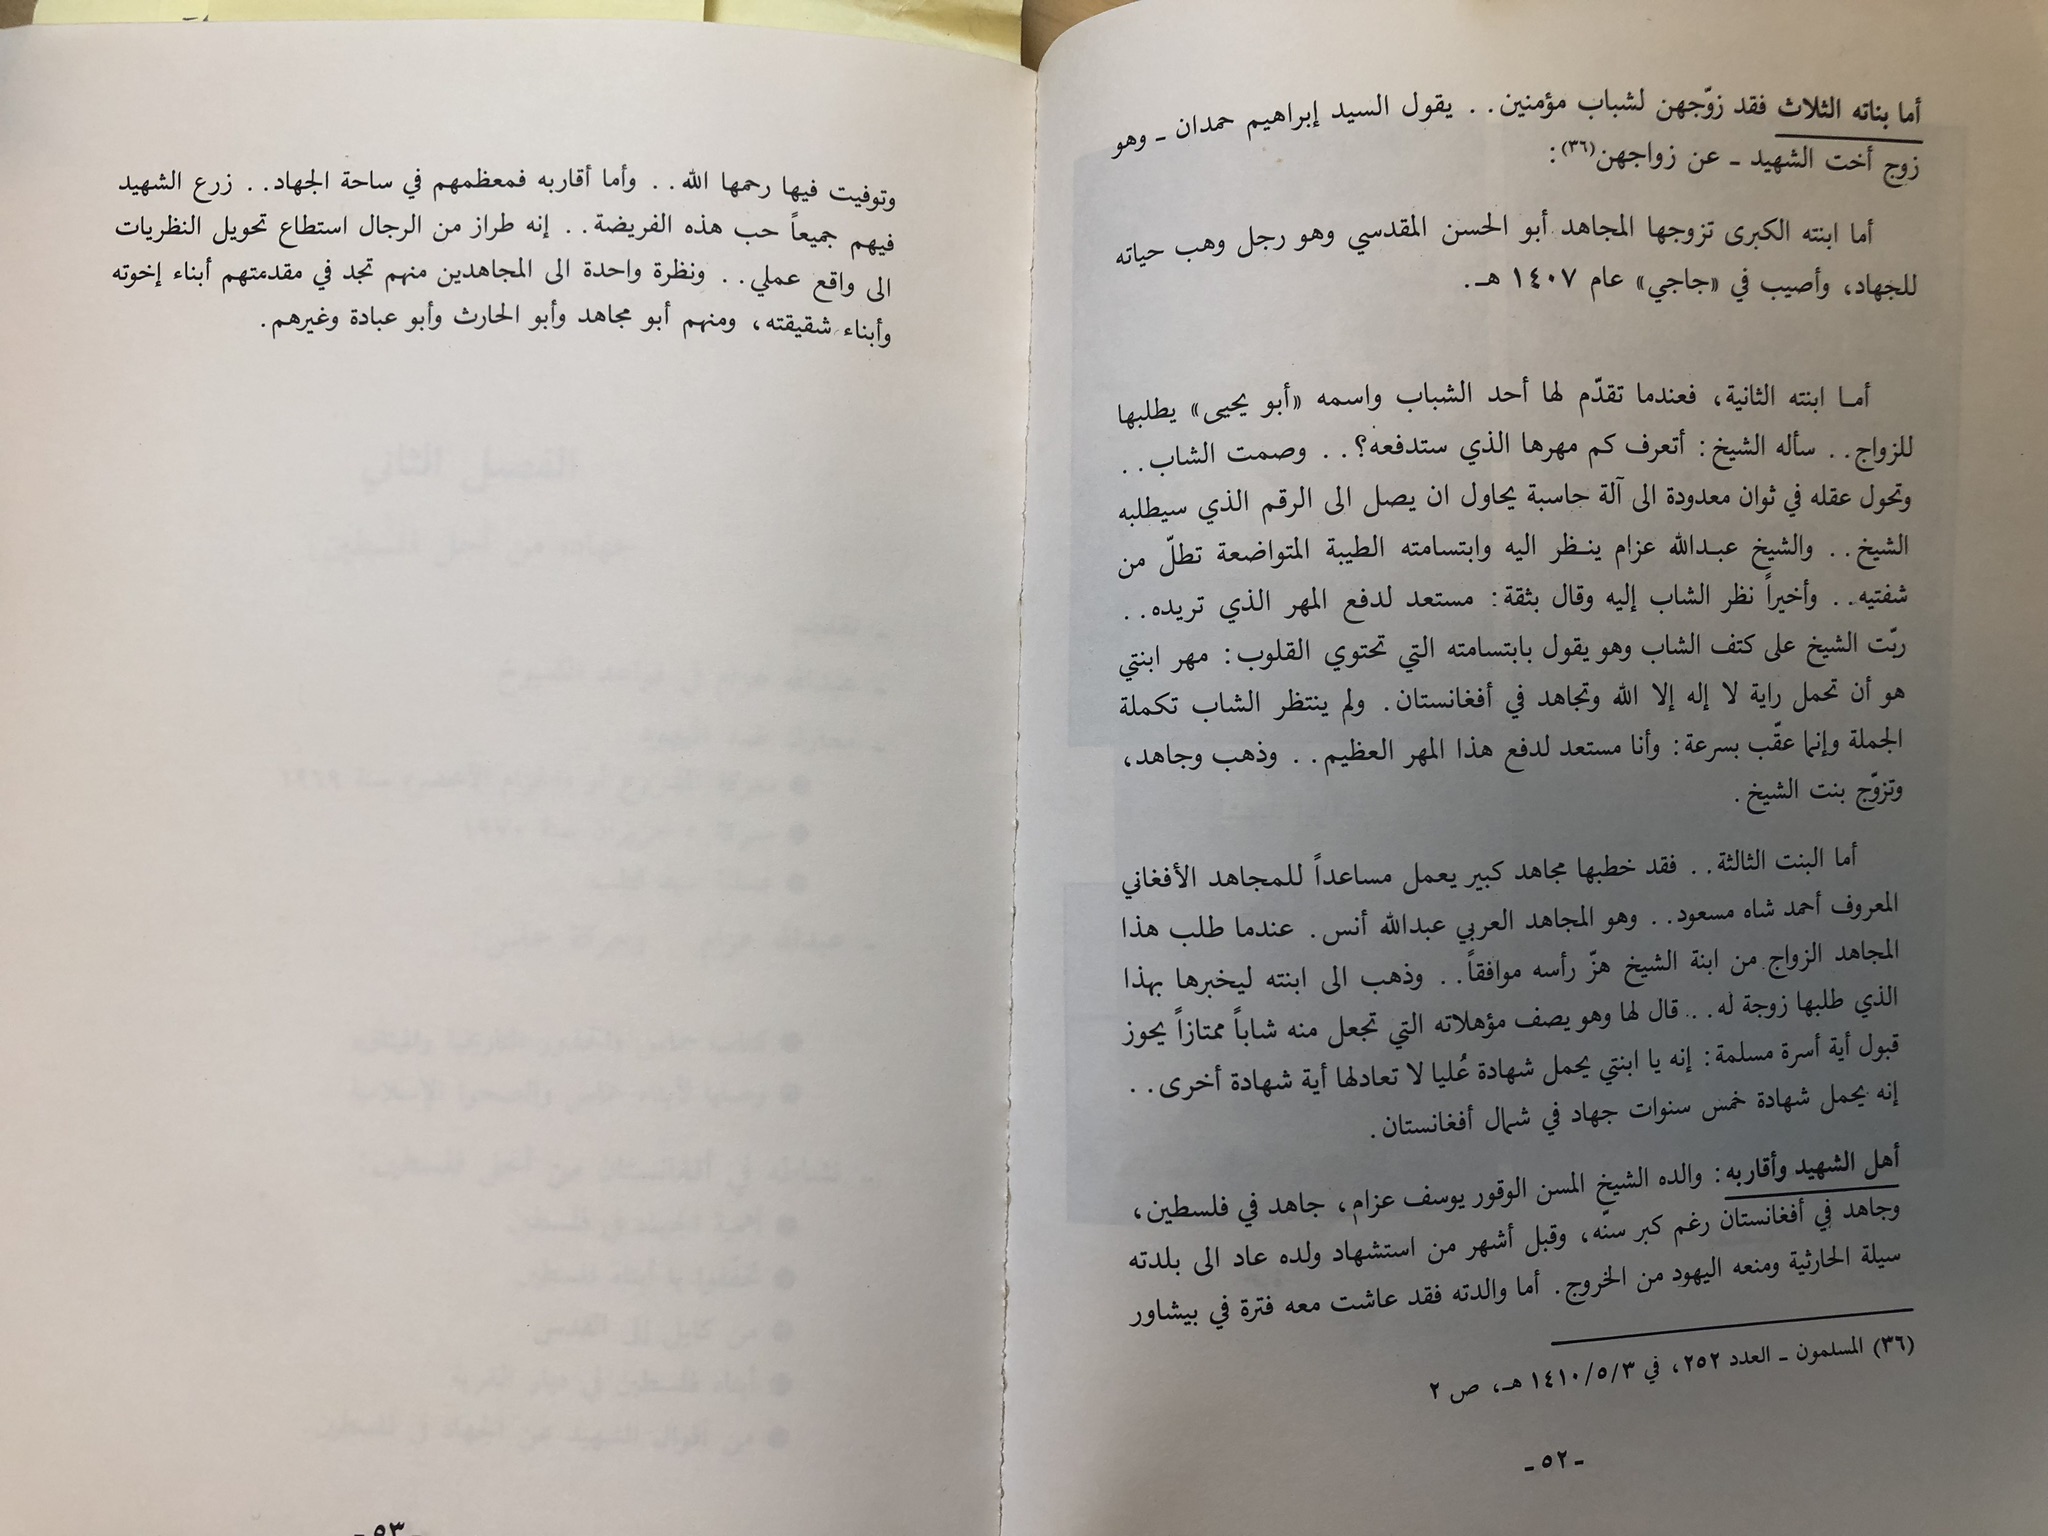 أما بناته الثلاث فقد زوّجهن لشباب مؤمنين. . يقول السيد إبراهيم حمدان ـ وهو
زوج أخت الشهيد ـ عن زواجهن(٣٦):
أما ابنته الكبرى تزوجها المجاهد أبو الحسن المقدسي وهو رجل وهب حياته
للجهاد، وأصيب في «جاجي» عام ١٤٠٧ هـ.
أما ابنته الثانية، فعندما تقدّم لها أحد الشباب واسمه «أبو يحيى» يطلبها
للزواج. . سأله الشيخ: أتعرف كم مهرها الذي ستدفعه؟. . وصمت الشاب. .
وتحول عقله في ثوان معدودة الى آلة حاسبة يحاول ان يصل الى الرقم الذي سيطلبه
الشيخ. . والشيخ عبدالله عزام ينظر اليه وابتسامته الطيبة المتواضعة تطلّ من
شفتيه. . وأخيراً نظر الشاب إليه وقال بثقة: مستعد لدفع المهر الذي تريده. .
ربّت الشيخ على كتف الشاب وهو يقول بابتسامته التي تحتوي القلوب: مهر ابنتي
هو أن تحمل راية لا إله إلا الله وتجاهد في أفغانستان. ولم ينتظر الشاب تكملة
الجملة وإنما عقّب بسرعة: وأنا مستعد لدفع هذا المهر العظيم. . وذهب وجاهد،
وتزوّج بنت الشيخ.
أما البنت الثالثة. . فقد خطبها مجاهد كبير يعمل مساعداً للمجاهد الأفغاني
المعروف أحمد شاه مسعود. . وهو المجاهد العربي عبدالله أنس. عندما طلب هذا
المجاهد الزواج من ابنة الشيخ هزّ رأسه موافقاً. . وذهب الى ابنته ليخبرها بهذا
الذي طلبها زوجة له. . قال لها وهو يصف مؤهلاته التي تجعل منه شاباً ممتازاً يحوز
قبول أية أسرة مسلمة: إنه يا ابنتي يحمل شهادة عُليا لا تعادلها أية شهادة أخرى. .
إنه يحمل شهادة خمس سنوات جهاد في شمال أفغانستان.
أهل الشهيد وأقاربه: والده الشيخ المسن الوقور يوسف عزام، جاهد في فلسطين،
وجاهد في أفغانستان رغم كبر سنّه، وقبل أشهر من استشهاد ولده عاد الى بلدته
سيلة الحارثية ومنعه اليهود من الخروج. أما والدته فقد عاشت معه فترة في بيشاور
(٣٦) المسلمون ـ العدد ٢٥٢، في ١٤١٠/٥/٣ هـ، ص ٢
ـ ٥٢ ـ
وتوفيت فيها رحمها الله. . وأما أقاربه فمعظمهم في ساحة الجهاد. . زرع الشهيد
فيهم جميعاً حب هذه الفريضة. . إنه طراز من الرجال استطاع تحويل النظريات
الى واقع عملي. . ونظرة واحدة الى المجاهدين منهم تجد في مقدمتهم أبناء إخوته
وأبناء شقيقته، ومنهم أبو مجاهد وأبو الحارث وأبو عبادة وغيرهم.
ـ ٥٣ ـ